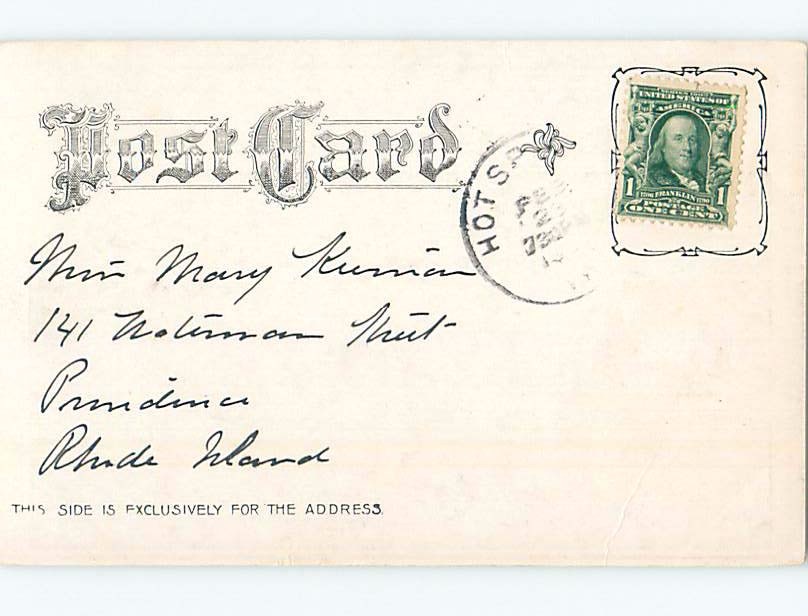 Post Card
HOT SP
UNITED STATES OF
AMERICA
1 FRANKLIN 1
POSTAGE
ONE CENT
Miss Mary Kiernan
141 Waterman Street
Providence
Rhode Island
THIS SIDE IS EXCLUSIVELY FOR THE ADDRESS.